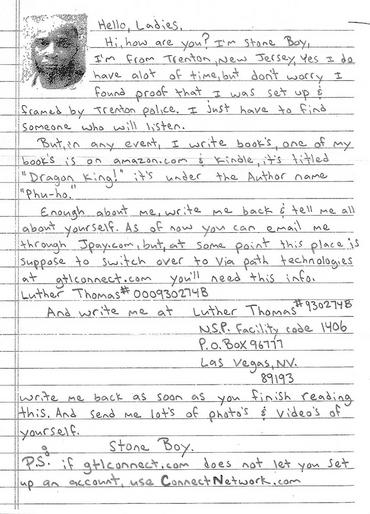 Hello, Ladies.
Hi, how are you? I'm Stone Boy,
I'm from Trenton, New Jersey, Yes I do
have alot of time, but don't worry I
found proof that I was set up &
framed by Trenton police. I just have to find
someone who will listen.
But, in any event, I write book's, one of my
book's is on amazon.com & Kindle, it's titled
"Dragon King!" it's under the Author name
"Phu-ho."
Enough about me, write me back & tell me all
about yourself. As of now you can email me
through Jpay.com, but, at some point this place is
suppose to switch over to Via path technologies
at gtlconnect.com you'll need this info.
Luther Thomas# 000930274B
And write me at Luther Thomas #930274B
N.S.P. Facility code 1406
P.O. Box 96777
Las Vegas, NV.
89193
Write me back as soon as you finish reading
this. And send me lot's of photo's & video's of
yourself.
Stone Boy.
P.S. if gtlconnect.com does not let you set
up an account, use ConnectNetwork.com